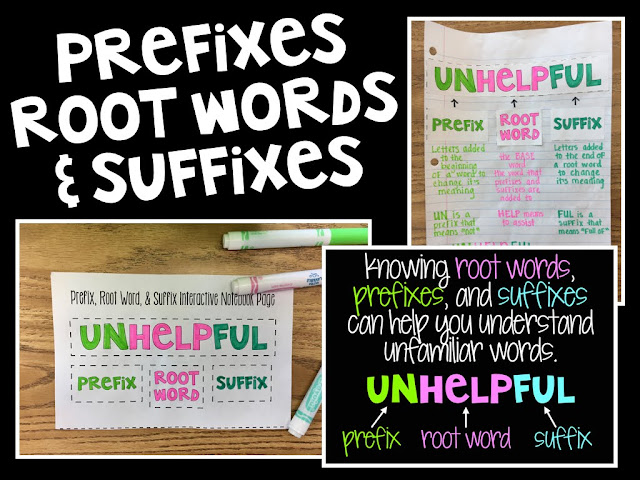 PREFIXES
ROOT WORDS
& SUFFIXES
UNHELPFUL
PREFIX ROOT WORD SUFFIX
Letters added
to the
beginning
of a word to
change it's
meaning
the BASE
word
the word that
prefixes and
suffixes are
added to
Letters added
to the end of
a root word
to change
it's meaning
UN is a
prefix that
means "not"
HELP means
to assist
FUL is a
suffix that
means "full of"
UNHELPFUL
Prefix, Root Word, & Suffix Interactive Notebook Page
UNHELPFUL
PREFIX ROOT WORD SUFFIX
Knowing root words,
prefixes, and suffixes
can help you understand
unfamiliar words.
UNHELPFUL
prefix root word suffix